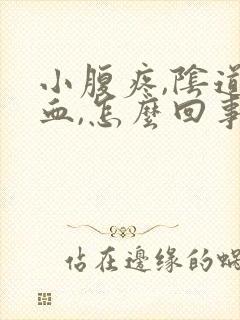 小腹疼,陰道
血,怎麼回事
佔在邊緣的蝸